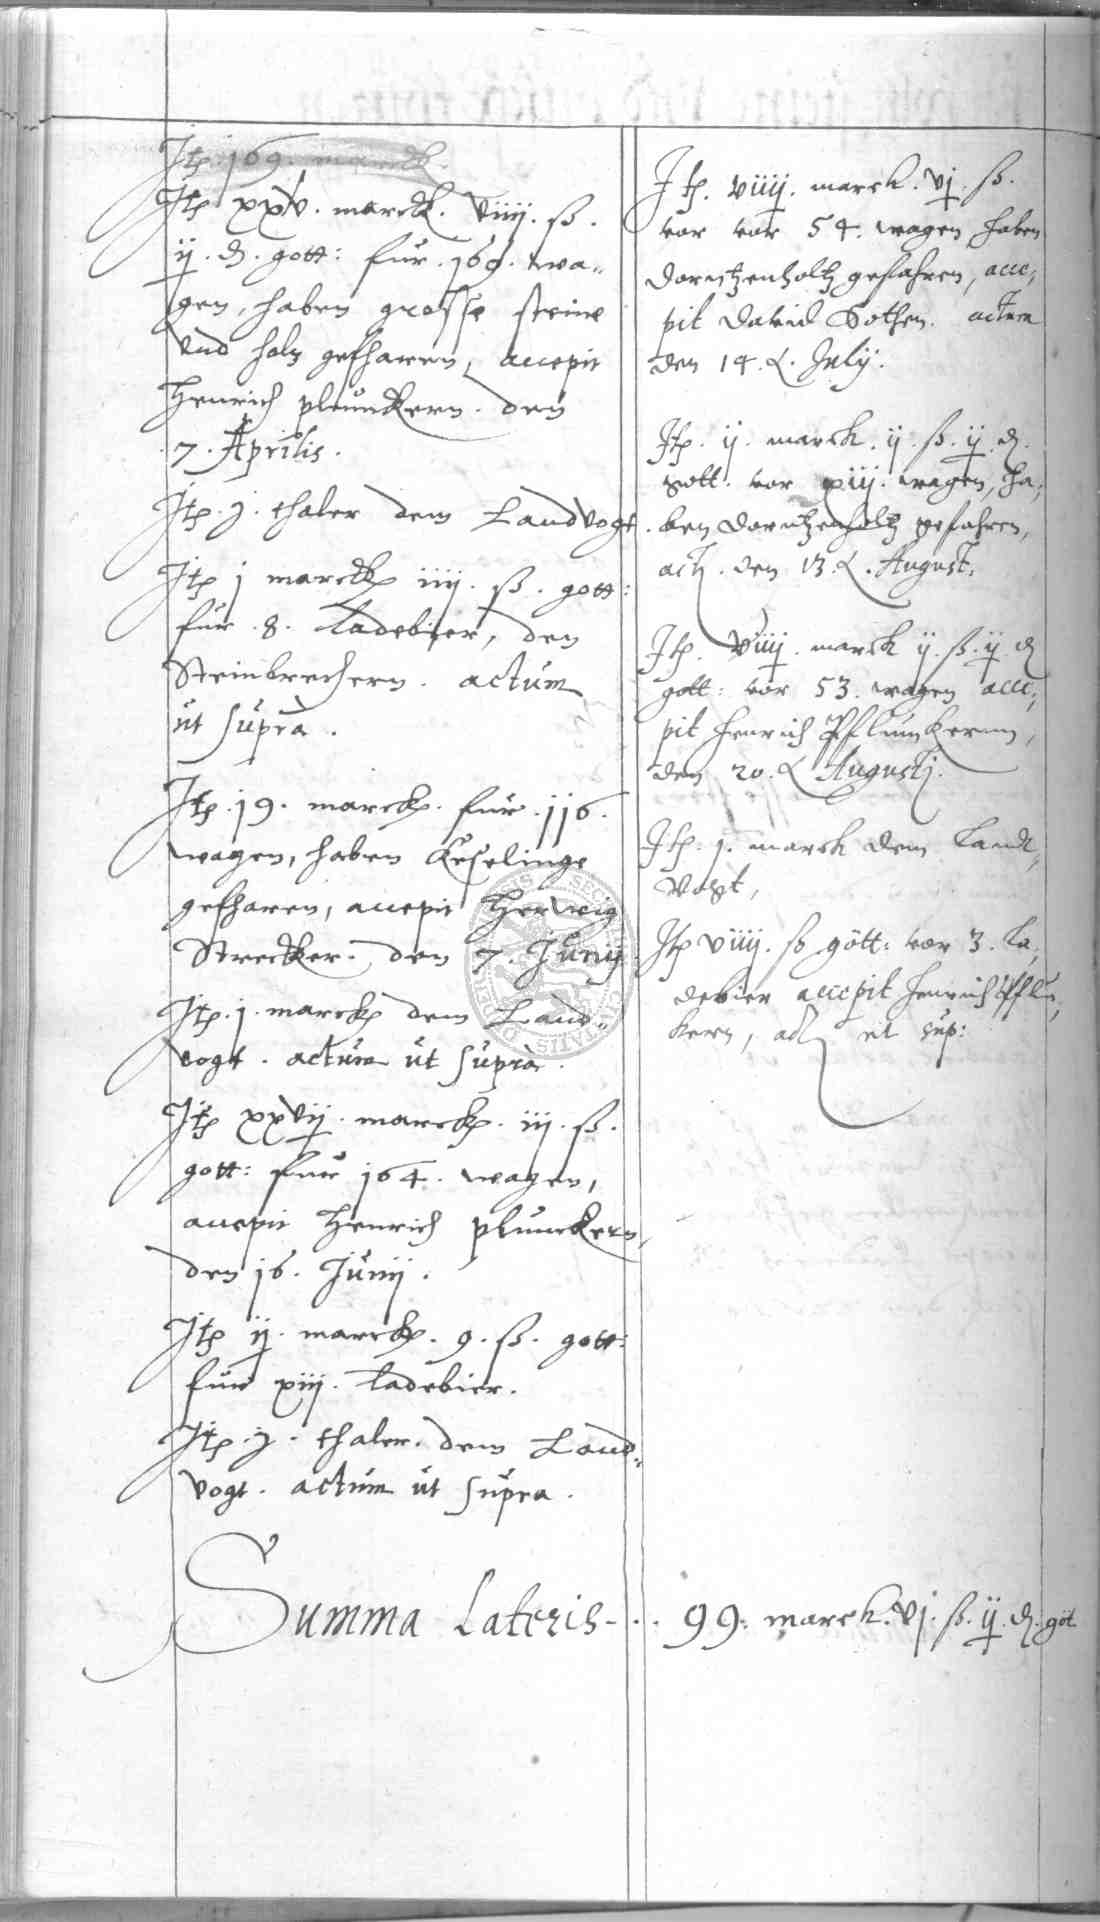 Itp. 169. marck.
Itp xxv. marck. viiij. ß.
ij. d. gott: für .169. wa„
gen, haben grosse steine
vnd holtz gefharen, accepit
Henrich plünckern. den
.7. Aprilis.
Itp. j. thaler dem Landvogt.
Itp j marck iiij. ß. gott:
für .8. Ladebier, den
Steinbrechern. actum
ut supra.
Itp .19. marck. für .116.
wagen, haben Keselinge
gefharen, accepit Herwig
Strecker. den 7. Junij.
Itp. j. marck dem Land„
vogt. actum ut supra.
Itp xxvij. marck. iij. ß.
gott: für 164. wagen,
accepit Henrich plünckern,
den 16. Junij.
Itp ij. marck. 9. ß. gott:
für xiij. Ladebier.
Itp. j. thaler. dem Land„
vogt. actum ut supra.
Itp. viiij. marck. vj. ß.
vor vor 54. wagen haben
dorntzenholtz gefahren, acce„
pit David Bothen. actum
den 14. Julij.
Itp. ij. marck. ij. ß. ij. d.
gott. vor xiij. wagen, ha„
ben dorntzenholtz gefahren,
act. den 13. August.
Itp. viiij. marck ij. ß. ij d
gott: vor 53. wagen acce„
pit Henrich Pflunkernn,
den 20. Augustj.
Itp. 1. marck dem Land„
vogt,
Itp viiij. ß gött: vor 3. La„
debier accepit Henrich Pflun„
kern, act ut sup:
Summa Lateris - . . 99. marck. vj. ß. ij. d. göt